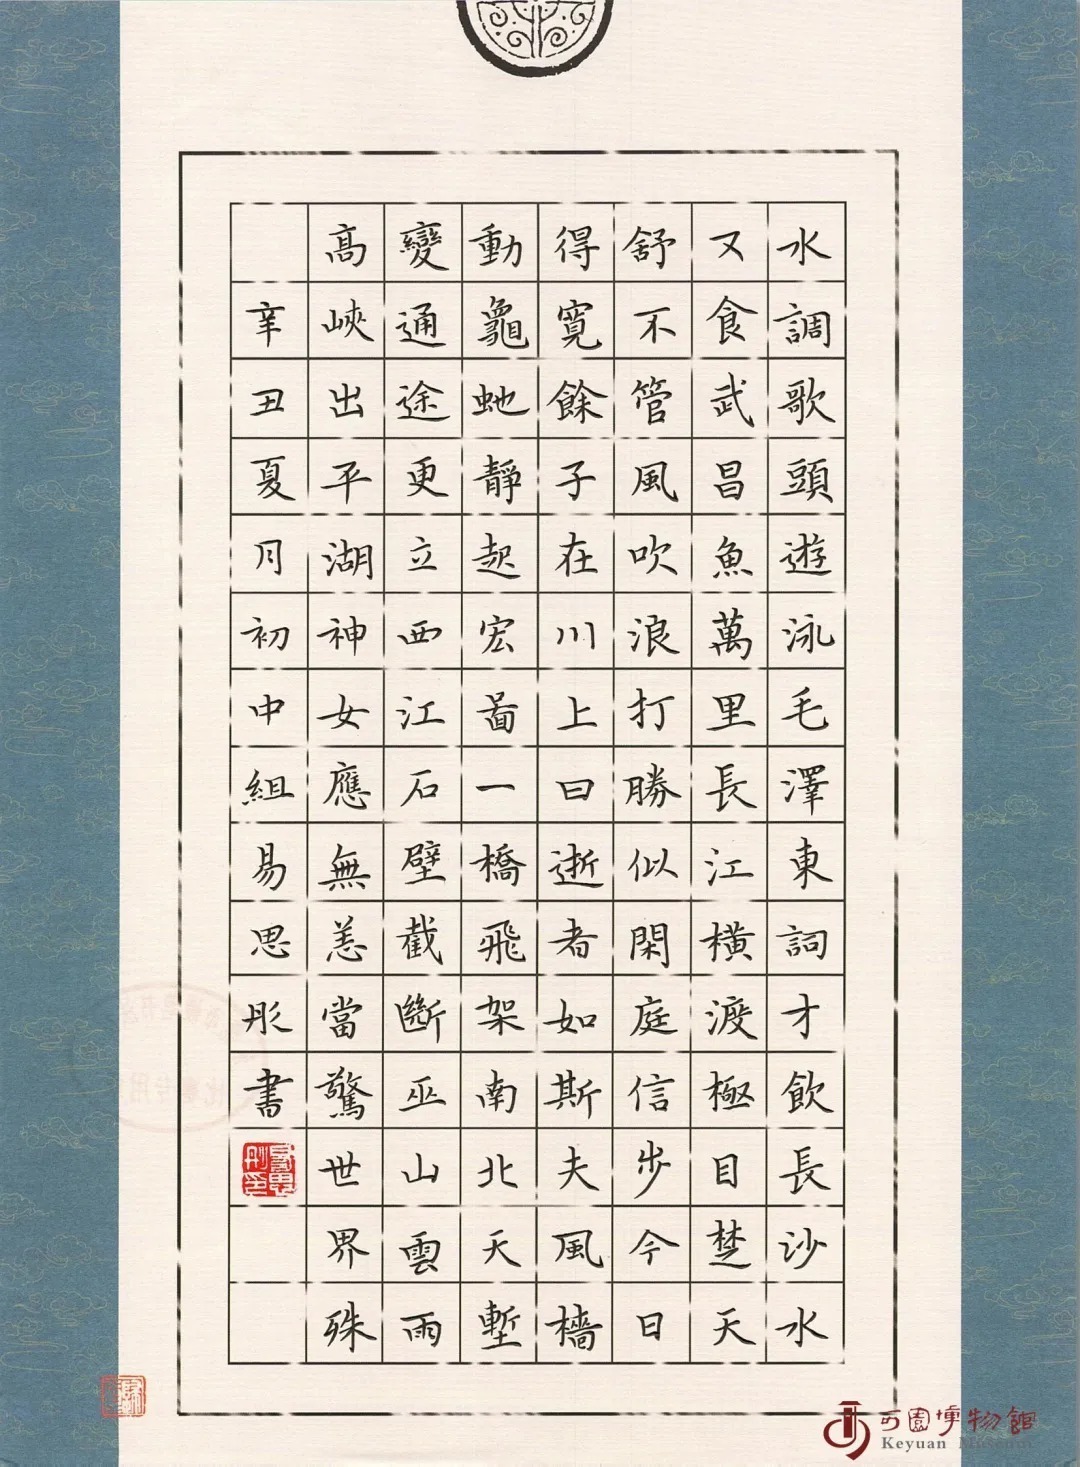 水調歌頭遊泳毛澤東詞才飲長沙水
又食武昌魚萬里長江橫渡極目楚天
舒不管風吹浪打勝似閑庭信步今日
得寬餘子在川上曰逝者如斯夫風檣
動龜虵靜起宏啚一橋飛架南北天塹
變通途更立西江石壁截斷巫山雲雨
髙峽出平湖神女應無恙當驚世界殊
辛丑夏月初中組易思彤書
可園博物館
Keyuan Museum